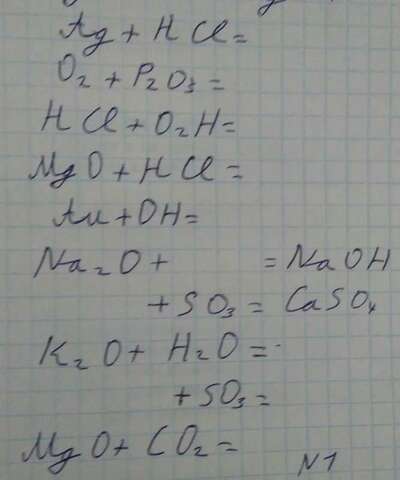 Ag + HCl =
O₂ + P₂O₃ =
HCl + O₂H =
MgO + HCl =
Au + OH =
Na₂O + = NaOH
+ SO₃ = CaSO₄
K₂O + H₂O =
+ SO₃ =
MgO + CO₂ =
N1